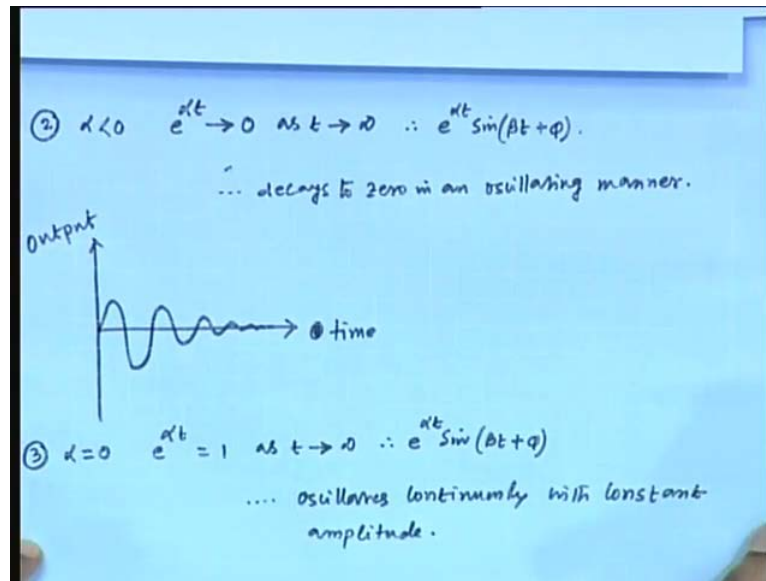 ② α<0 e^{αt} → 0 as t → ∞ ∴ e^{αt} Sin(βt + φ).
... decays to zero in an oscillating manner.
Output
time
③ α=0 e^{αt} = 1 as t → ∞ ∴ e^{αt} Sin (βt + φ)
.... oscillates continuously with constant
amplitude.